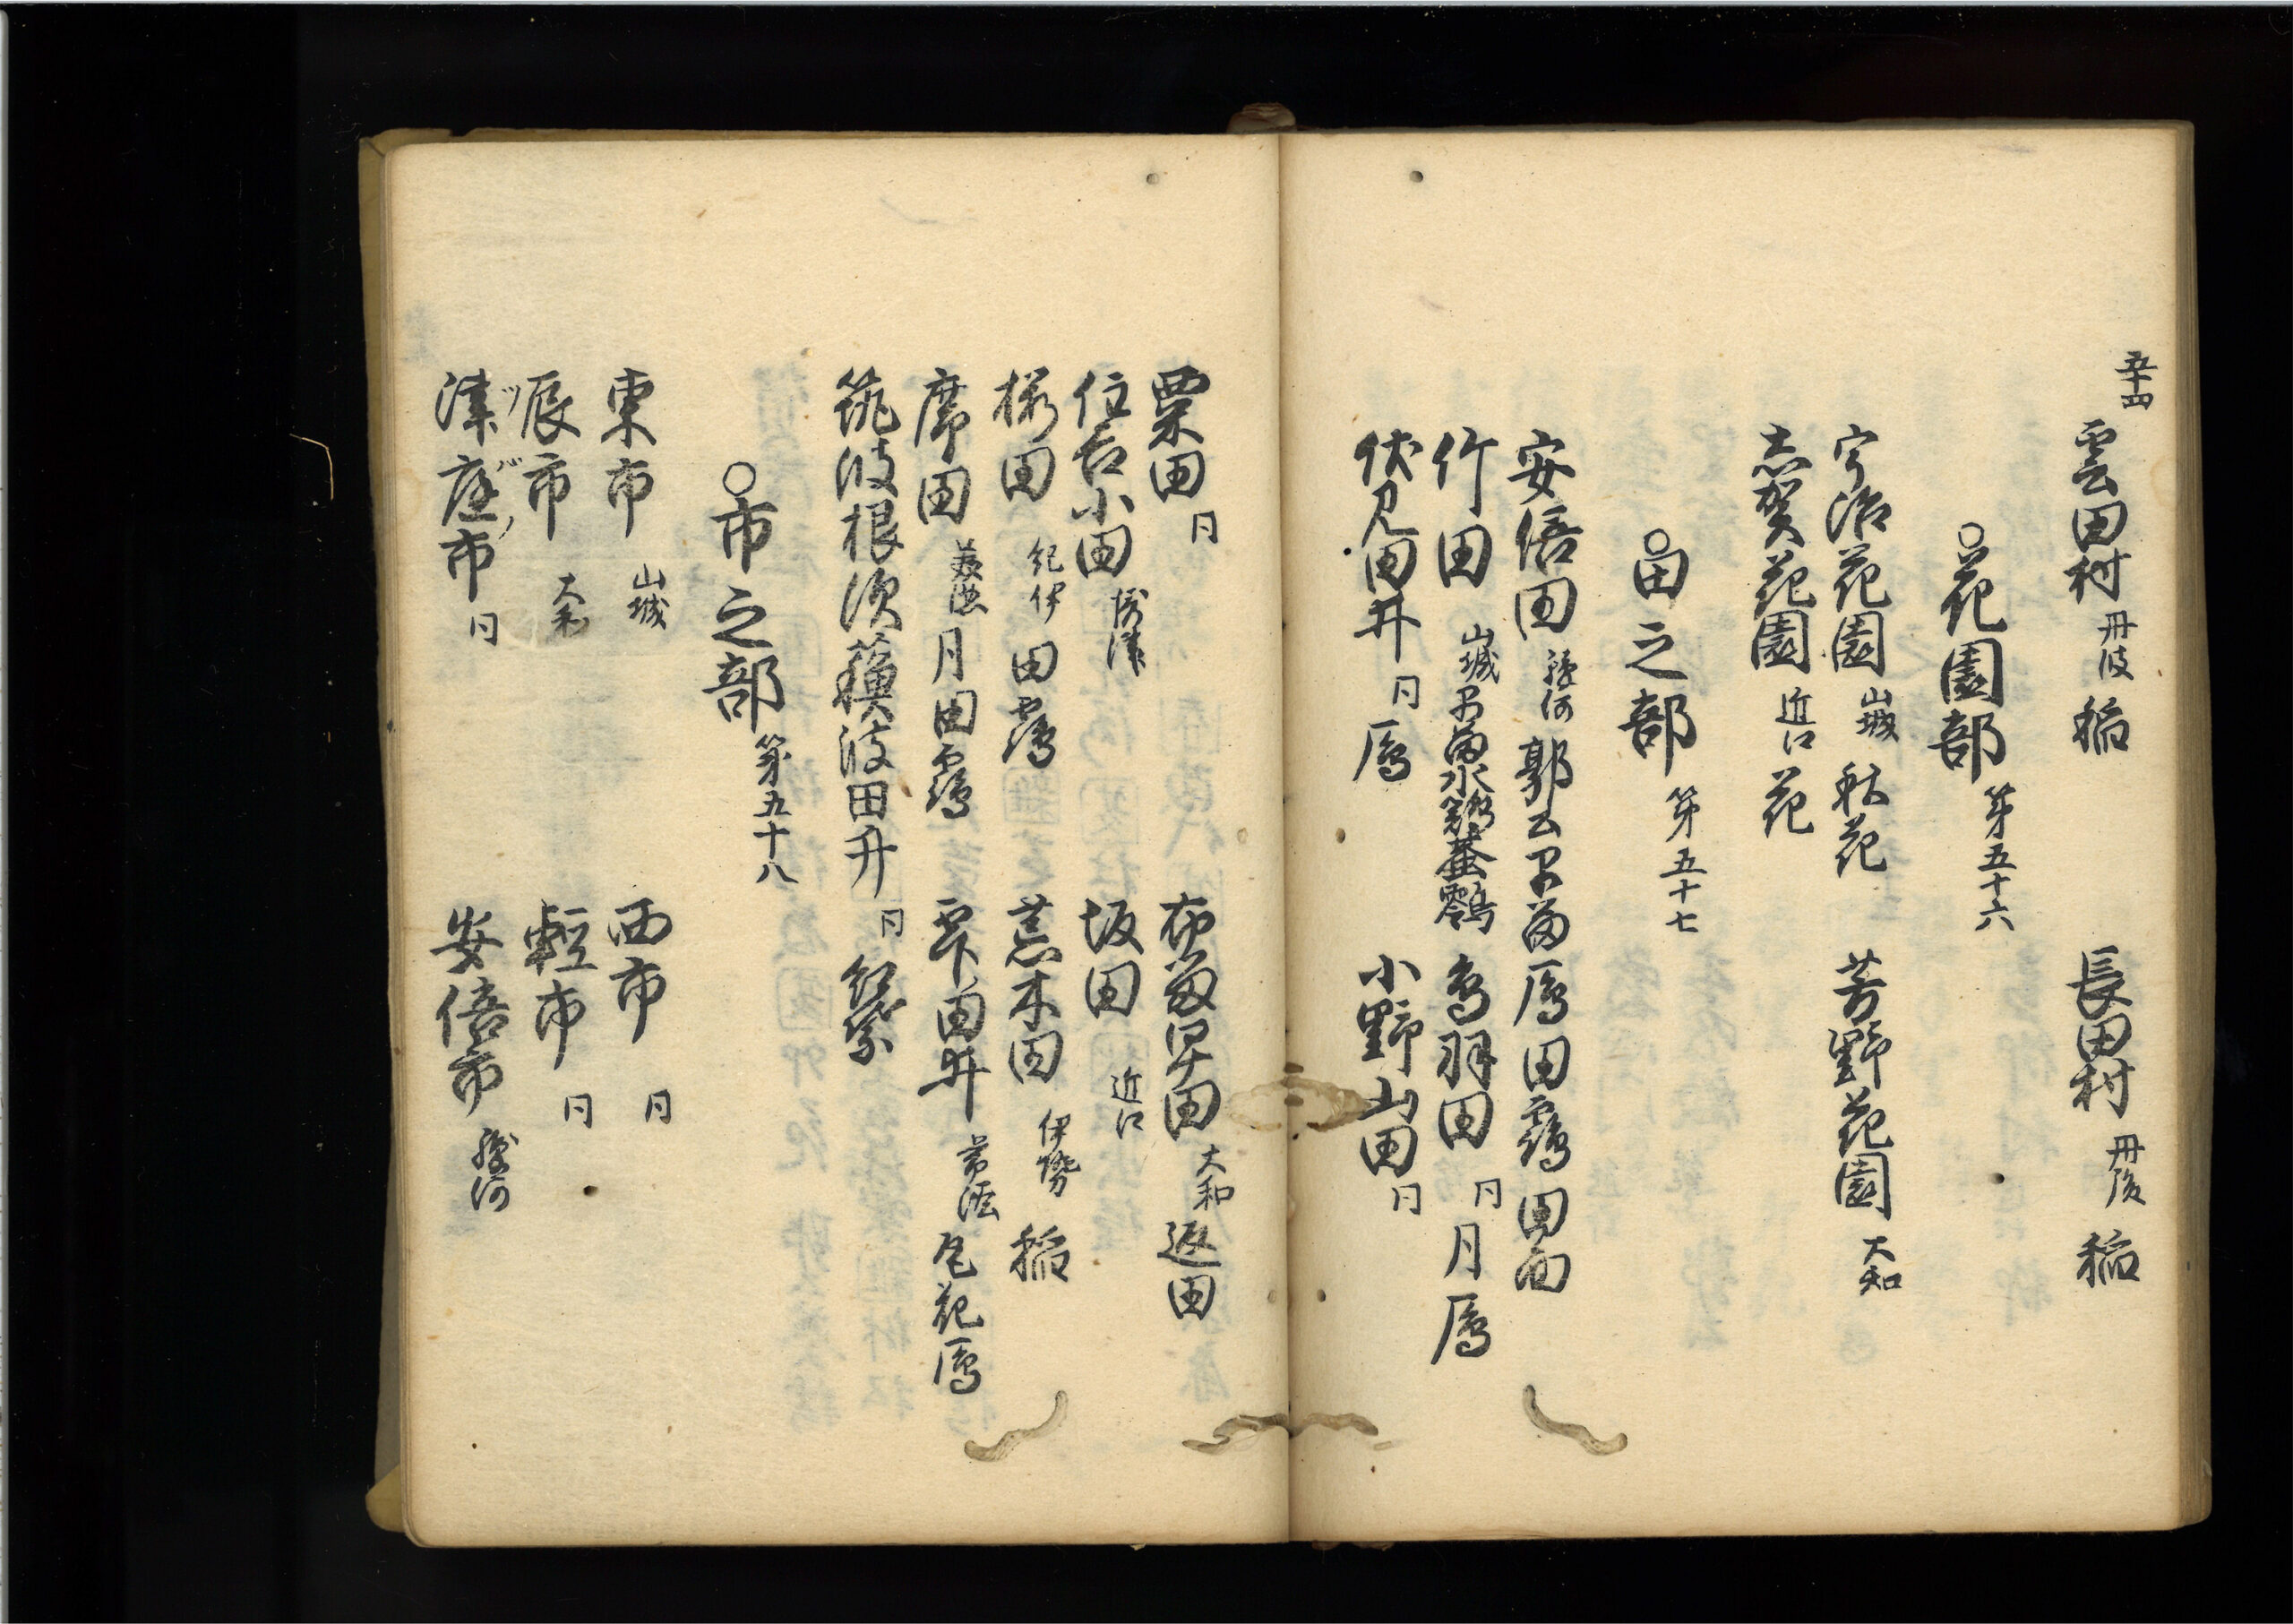 五十四
雲田村 丹波 稲 長田村 丹後 稲
○花園部 第五十六
宇治花園 山城 秋花 芳野花園 大和
志賀花園 近江 花
○田之部 第五十七
安倍田 駿河 郭公 早苗 鴈 田鶴 田面
竹田 山城 早苗 水鶏 螢 鶴 鳥羽田 同 月 鴈
伏見田井 同 鴈 小野山田 同
粟田 同 布留早田 大和 返田
住吉小田 摂津 坂田 近江
桜田 紀伊 田鶴 荒木田 伊勢 稲
席田 美濃 月 田鶴 田井 常陸 花 鴈
筑波根須蘓波田井 同 紅葉
○市之部 第五十八
東市 山城 西市 同
辰市 大和 軽市 同
海座市 同 安倍市 駿河